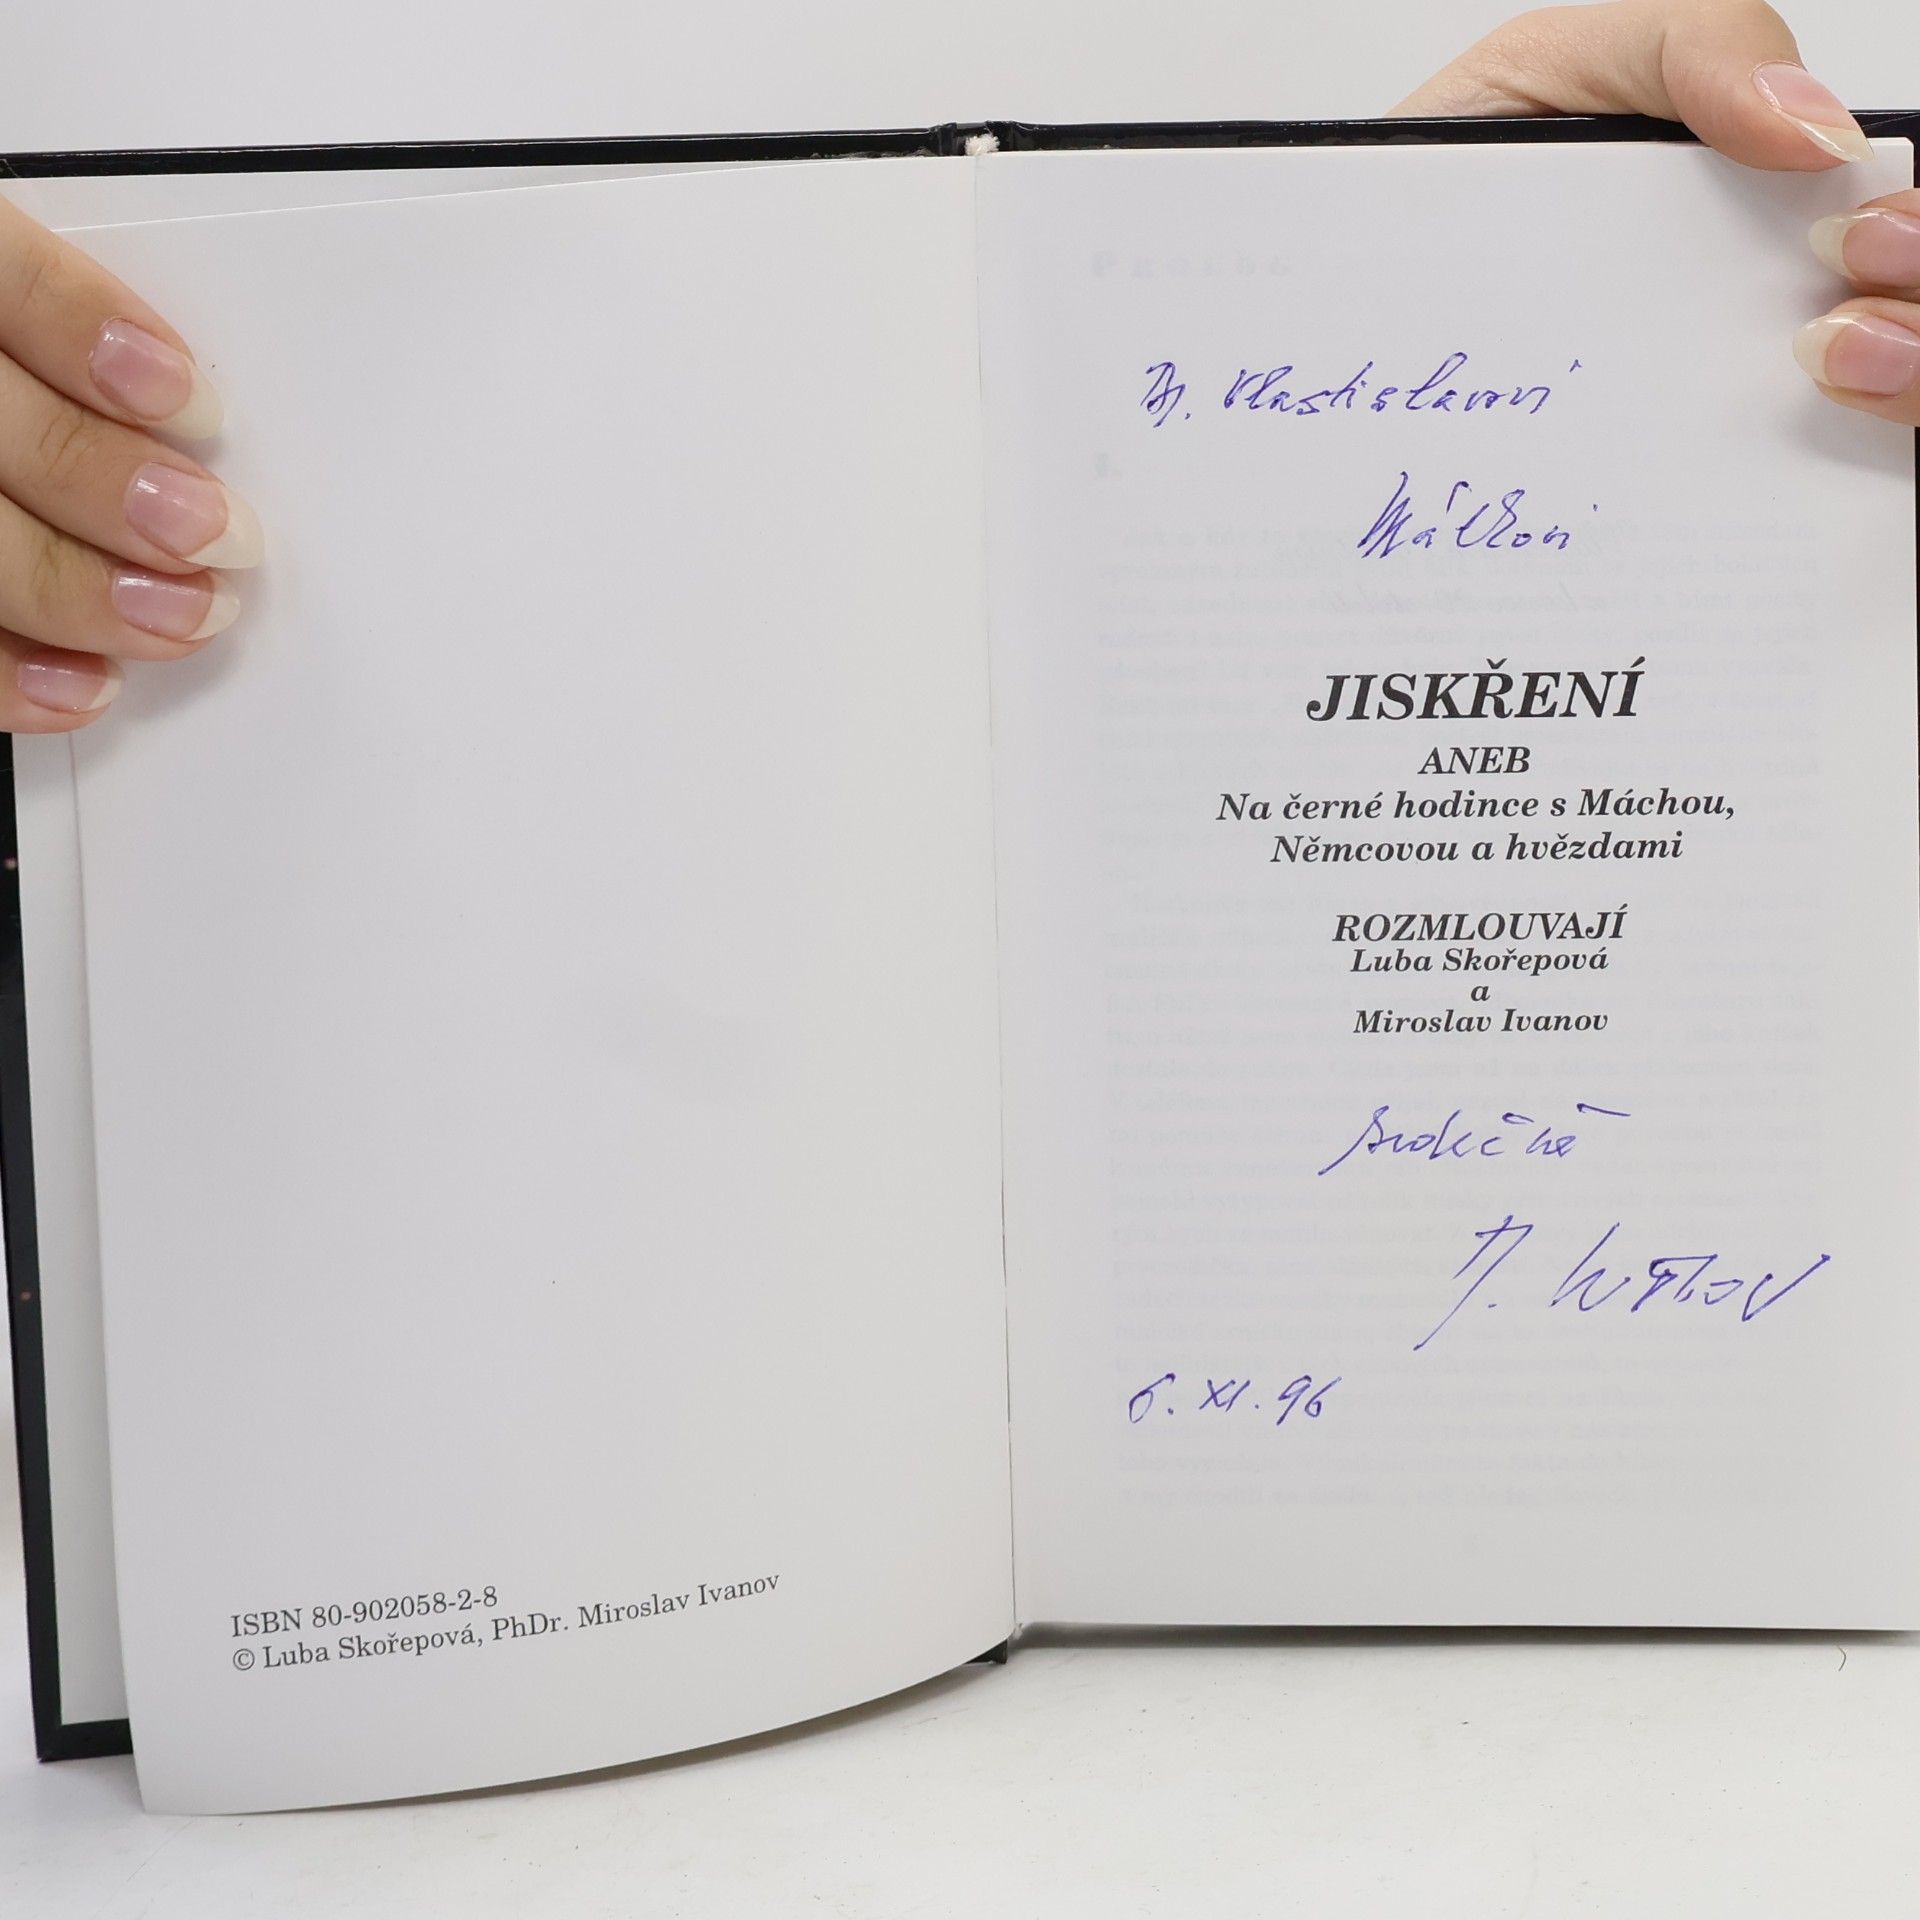 ISBN 80-902058-2-8
© Luba Skořepová, PhDr. Miroslav Ivanov
Vlastislavovi
Mátlovi
JISKŘENÍ
ANEB
Na černé hodince s Máchou,
Němcovou a hvězdami
ROZMLOUVAJÍ
Luba Skořepová
a
Miroslav Ivanov
srdečně
6. XI. 96